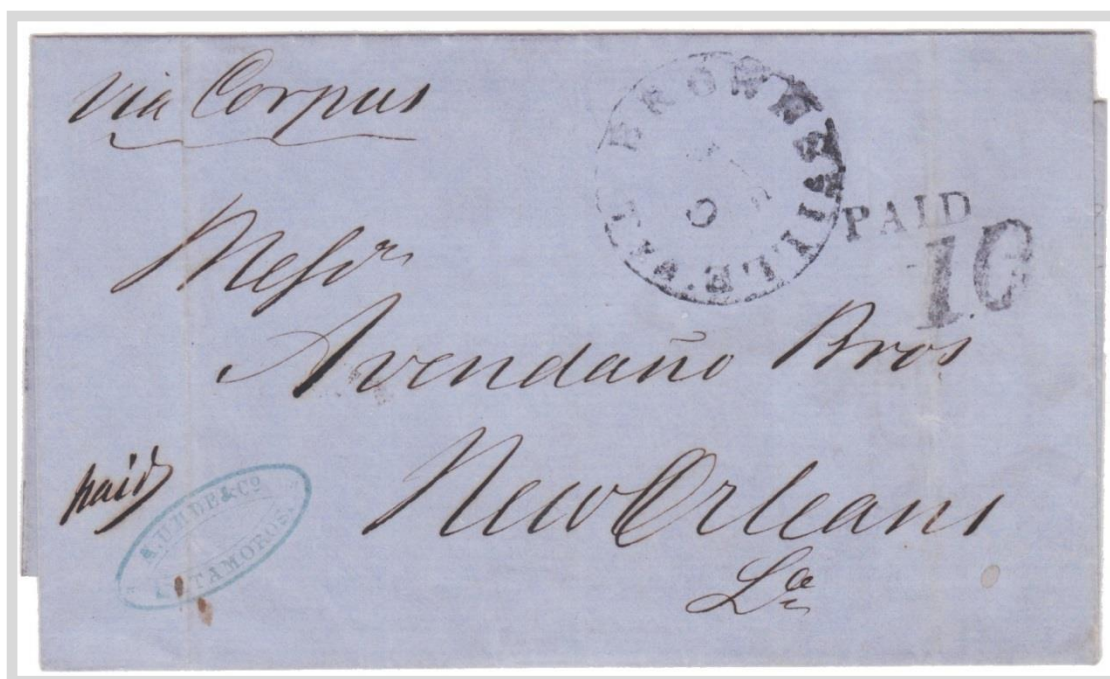 via Corpus
BROWNSVILLE
PAID
10
Messrs
Avendaño Bros
New Orleans
La
paid
A. URDE & Co
MATAMOROS.